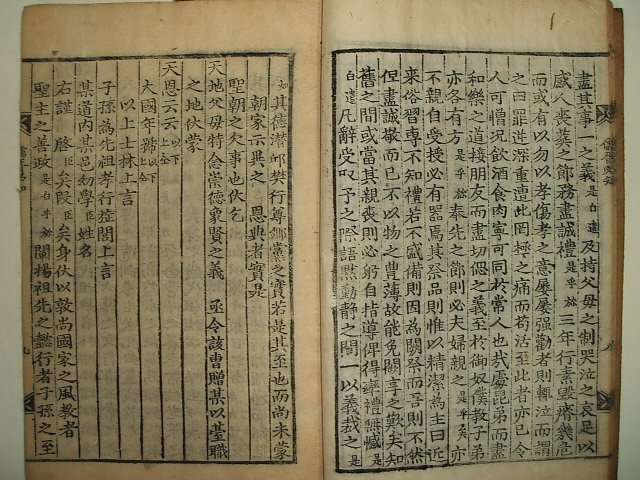 盡其事一之義是白遣及持父母之制哭泣之哀足以
感人喪葬之節務盡誠禮是乎旀三年行素毀瘠幾危
而或有以勿以孝傷孝之意屢屢强勸者則輒泣而謂
之曰罪逆深重遭此罔極之痛而苟活至此者亦已令
人可憎況飮酒食肉寧可同於常人也哉處昆弟而盡
和樂之道接朋友而盡切偲之義至於御奴僕敎子弟
亦各有方是乎旀奉先之節則必夫婦親之是乎矣亦
不親自受授必有器焉其祭品則惟以精潔爲主曰近
來俗習專不知禮若不盛備則因爲闕祭而吾則不然
但盡誠敬而已不以物之豊薄故能免闕享之歎矣知
舊之間或當其親喪則必躬自指導俾得無禮無憾是
白遣凡辭受取予之際語默動靜之間一以義裁之是
如其德潛邱樊行尊鄕黨之實若是其至也而尙未蒙
朝家示異之 恩典者實是
聖朝之欠事也伏乞
天地父母特念崇德象賢之義 亟令該曹贈某以臺職
之地伏蒙
天恩云云以下上仝
大國年號以下上仝
以上士林上言
子孫爲先祖孝行㫌閭上言
某道內某邑幼學臣姓名
右謹 啓臣矣段臣矣身伏以敦尙國家之風敎者
聖主之善政是白乎旀闡揚祖先之懿行者子孫之至
儒胥必知
九